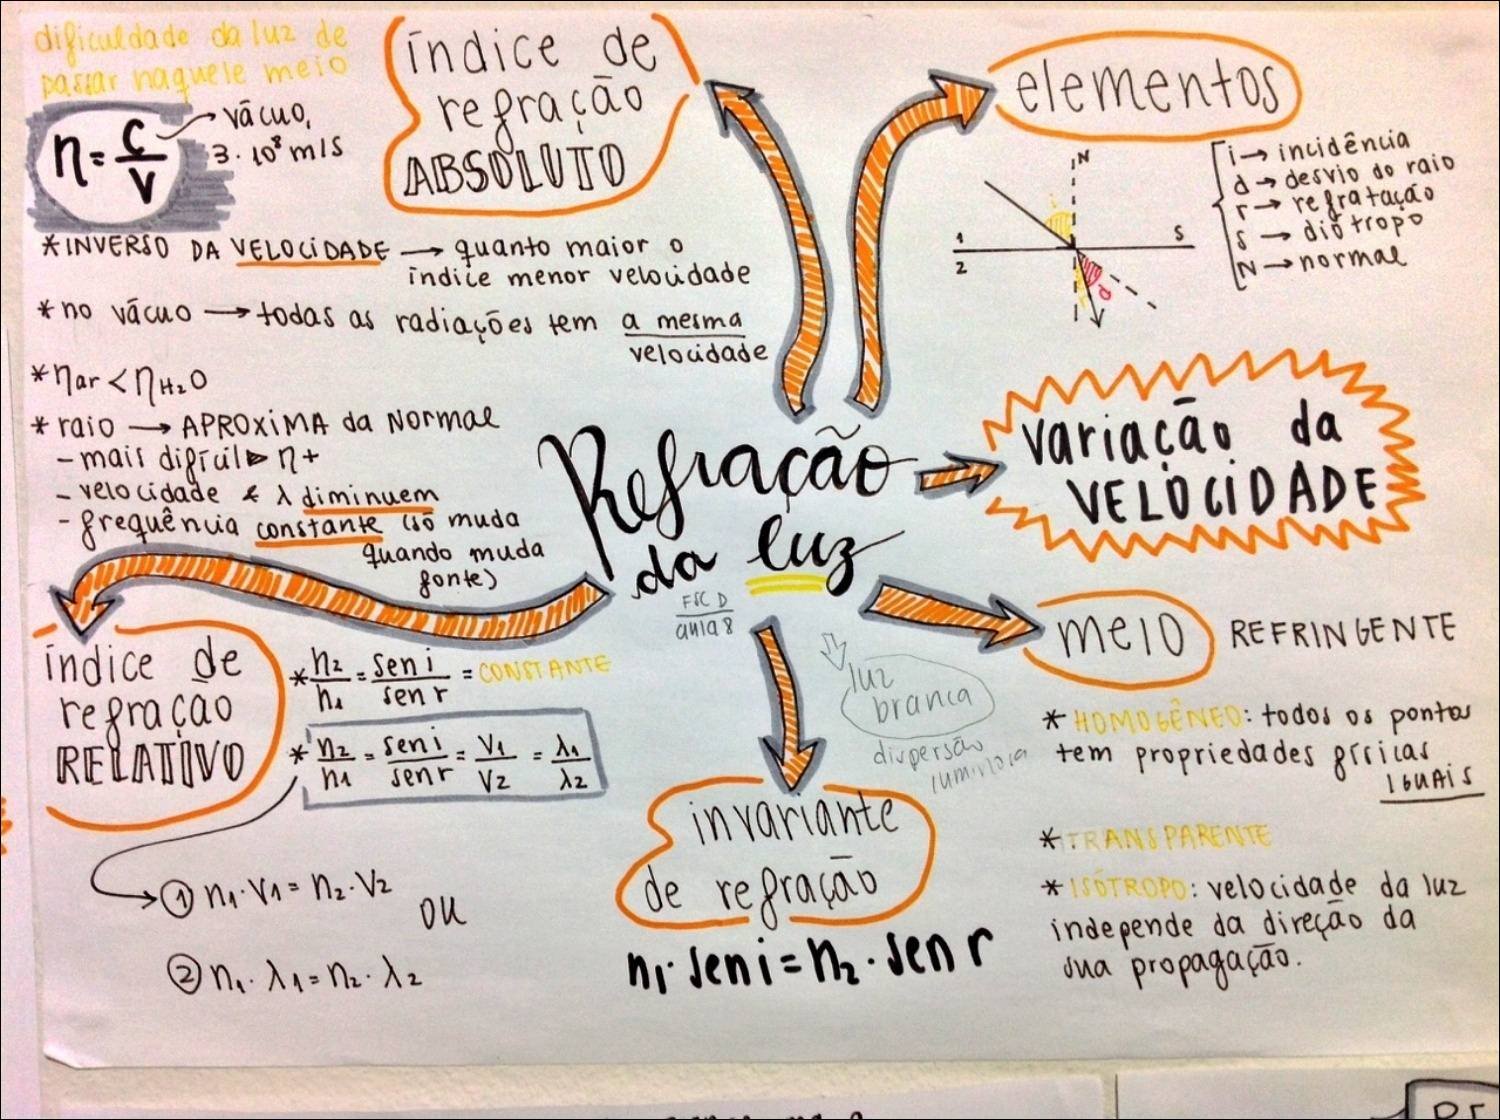 dificuldade da luz de
passar naquele meio
n = c/v
vácuo,
3 · 10⁸ m/s
índice de
refração
ABSOLUTO
* INVERSO DA VELOCIDADE → quanto maior o
índice menor velocidade
* no vácuo → todas as radiações tem a mesma
velocidade
* ηar < ηH₂O
* raio → APROXIMA da NORMAL
- mais difícil ▷ η+
- velocidade e λ diminuem
- frequência constante (só muda
quando muda
fonte)
elementos
i → incidência
d → desvio do raio
r → refratação
s → diótropo
N → normal
N
i
1
2
S
r
d
Refração
da luz
FSC D
aula 8
variação da
VELOCIDADE
MEIO REFRINGENTE
* HOMOGÊNEO: todos os pontos
tem propriedades físicas
IGUAIS
* TRANSPARENTE
* ISÓTROPO: velocidade da luz
independe da direção da
sua propagação.
luz
branca
dispersão
luminosa
invariante
de refração
n₁ · sen i = n₂ · sen r
índice de
refração
RELATIVO
* n₂/n₁ = sen i/sen r = CONSTANTE
* n₂/n₁ = sen i/sen r = V₁/V₂ = λ₁/λ₂
① n₁ · V₁ = n₂ · V₂
ou
② n₁ · λ₁ = n₂ · λ₂